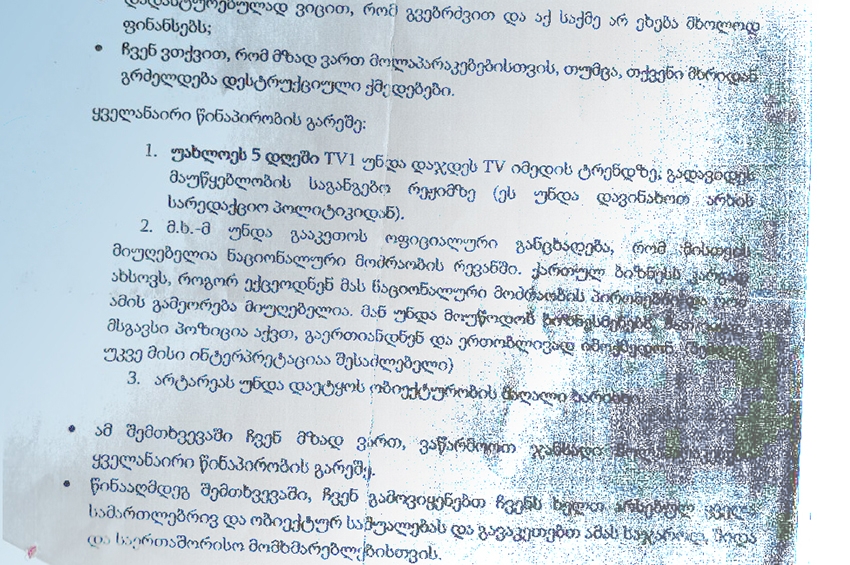 დადასტურებულად ვიცით, რომ გვებრძვით და აქ საქმე არ ეხება მხოლოდ
ფინანსებს;
• ჩვენ ვთქვით, რომ მზად ვართ მოლაპარაკებებისთვის, თუმცა, თქვენი მხრიდან
გრძელდება დესტრუქციული ქმედებები.
ყველანაირი წინაპირობის გარეშე:
1. უახლოეს 5 დღეში TV1 უნდა დაჯდეს TV იმედის ტრენდზე, გადავიდეს
მაუწყებლობის საგანგებო რეჟიმზე (ეს უნდა დავინახოთ არხის
სარედაქციო პოლიტიკიდან).
2. მ.ხ.-მ უნდა გააკეთოს ოფიციალური განცხადება, რომ მისთვის
მიუღებელია ნაციონალური მოძრაობის რევანში. ქართულ ბიზნესს კარგად
ახსოვს, როგორ ექცეოდნენ მას ნაციონალური მოძრაობის პირობებში და რომ
ამის გამეორება მიუღებელია. მან უნდა მოუწოდოს ბიზნესმენებს,
მსგავსი პოზიცია აქვთ, გაერთიანდნენ და ერთობლივად იმოქმედონ.
უკვე მისი ინტერპრეტაციაა შესაძლებელი)
3. არტარეას უნდა დაეტყოს ობიექტურობის მაღალი ხარისხი.
• ამ შემთხვევაში ჩვენ მზად ვართ, ვაწარმოოთ ჯანსაღი მოლაპარაკებები
ყველანაირი წინაპირობის გარეშე.
• წინააღმდეგ შემთხვევაში, ჩვენ გამოვიყენებთ ჩვენს ხელთ არსებულ ყველა
სამართლებრივ და ობიექტურ საშუალებას და გავაკეთებთ ამას საჯაროდ, შიდა
და საერთაშორისო მომხმარებლებისთვის.